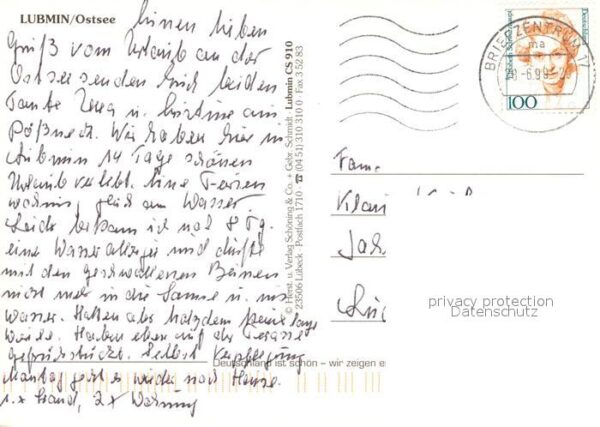 LUBMIN/Ostsee
Einen lieben
Gruß vom Urlaub an der
Ostsee senden Euch beiden
Tante und aus
Pößneck. Wir haben hier in
Lubmin 14 Tage schönen
Urlaub verlebt. Eine Ferien
wohnung, gleich am Wasser
Leider bekam ich nach 8 Tg.
eine Wasserallergie und durfte
mit den geschwollenen Beinen
nicht mehr in die Sonne u. ins
Wasser. Hatten aber trotzdem keine lange
weile. Haben eben auf der Terasse
gefrühstückt. Selbst Verpflegung
Montag geht es wieder nach Hause.
1 x Strand, 2 x Wohnung
© Herst. u. Verlag Schöning & Co. + Gebr. Schmidt · Lubmin CS 910
23506 Lübeck · Postfach 1710 · ☎ (04 51) 310 310 0 · Fax 3 52 83
Deutschland ist schön – wir zeigen e
BRIEFZENTRUM 17
ma
-6.99
Deutsche
100
Fam.
privacy protection
Datenschutz